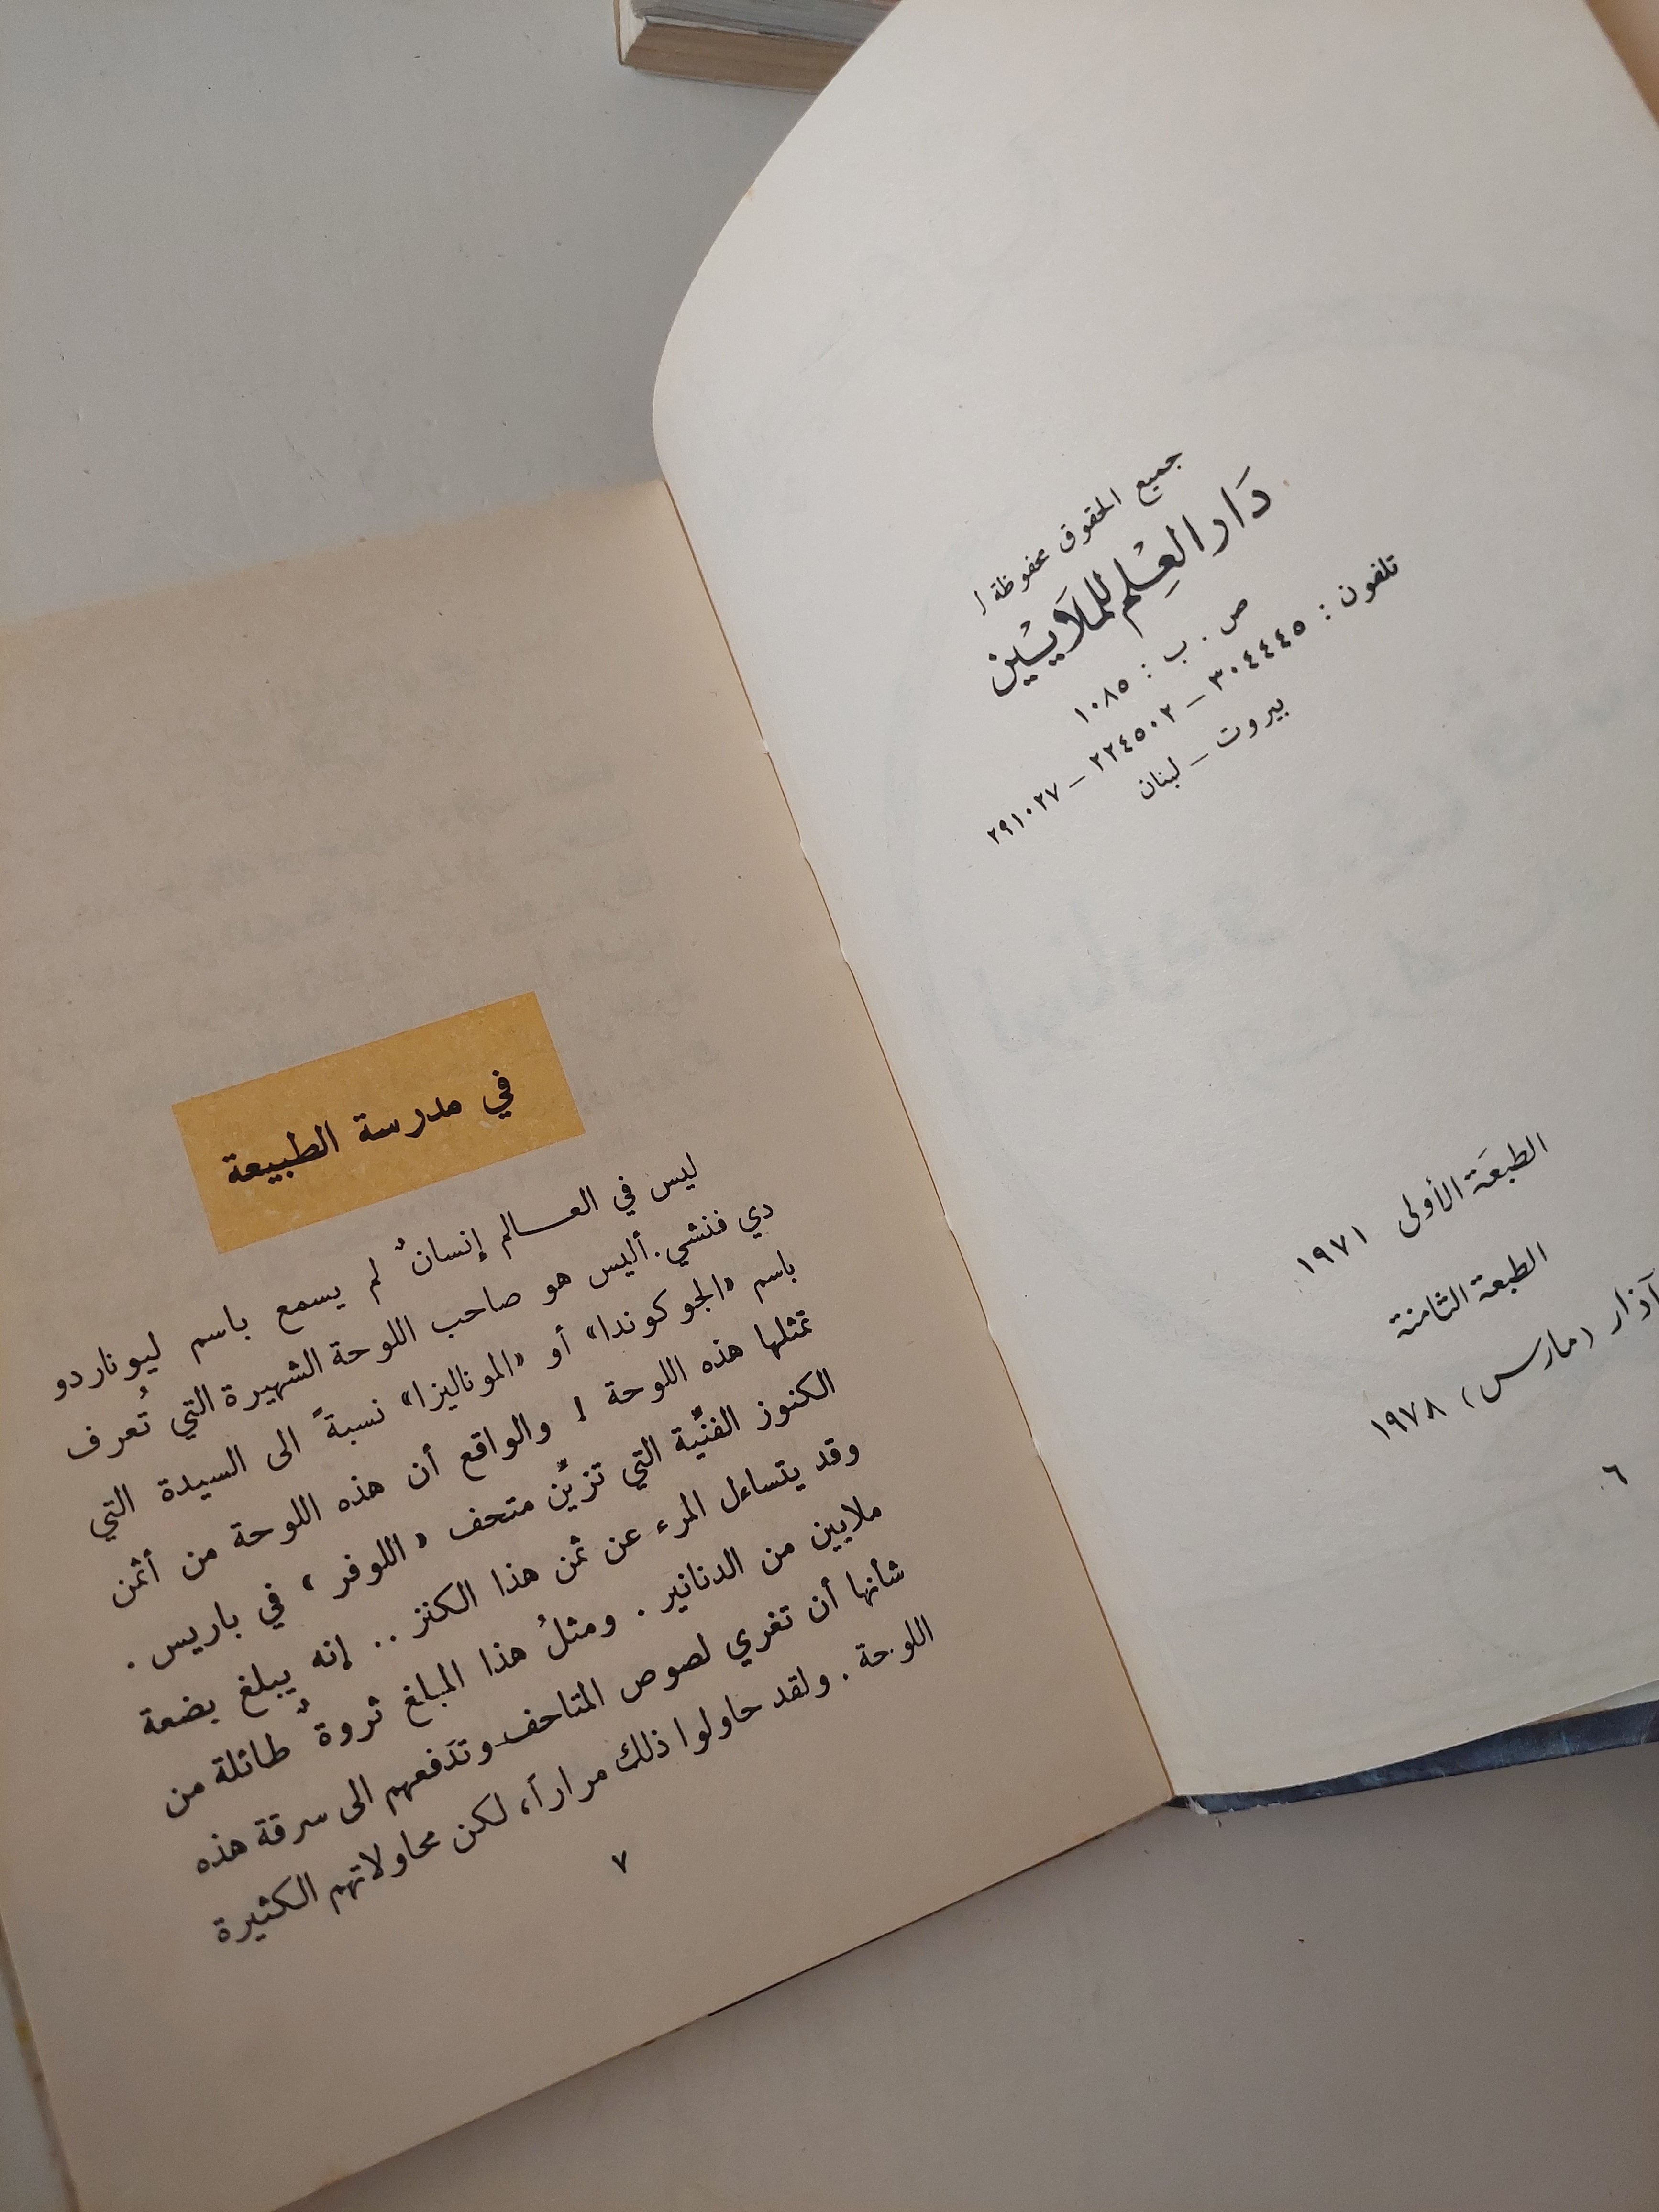 جميع الحقوق محفوظة لـ
دَار العِلم للمَلايين
ص . ب : ١٠٨٥
تلفون : ٣٠٤٤٤٥ – ٢٢٤٥٠٢ – ٢٩١٠٢٧
بيروت – لبنان
الطبعَة الأولى ١٩٧١
الطبعة الثامنة
آذار (مارس) ١٩٧٨
٦
في مدرسة الطبيعة
ليس في العـــالم إنسانٌ لم يسمع باسم ليوناردو
دي فنشي. أليس هو صاحب اللوحة الشهيرة التي تُعرف
باسم «الجوكوندا» أو «الموناليزا» نسبةً الى السيدة التي
تمثلها هذه اللوحة ! والواقع أن هذه اللوحة من أثمن
الكنوز الفنّية التي تزيّن متحف « اللوفر » في باريس .
وقد يتساءل المرء عن ثمن هذا الكنز .. إنه يبلغ بضعة
ملايين من الدنانير . ومثلُ هذا المبلغ ثروةٌ طائلة من
شأنها أن تغري لصوص المتاحف وتدَفعهم الى سرقة هذه
اللوحة . ولقد حاولوا ذلك مراراً، لكن محاولاتهم الكثيرة
٧